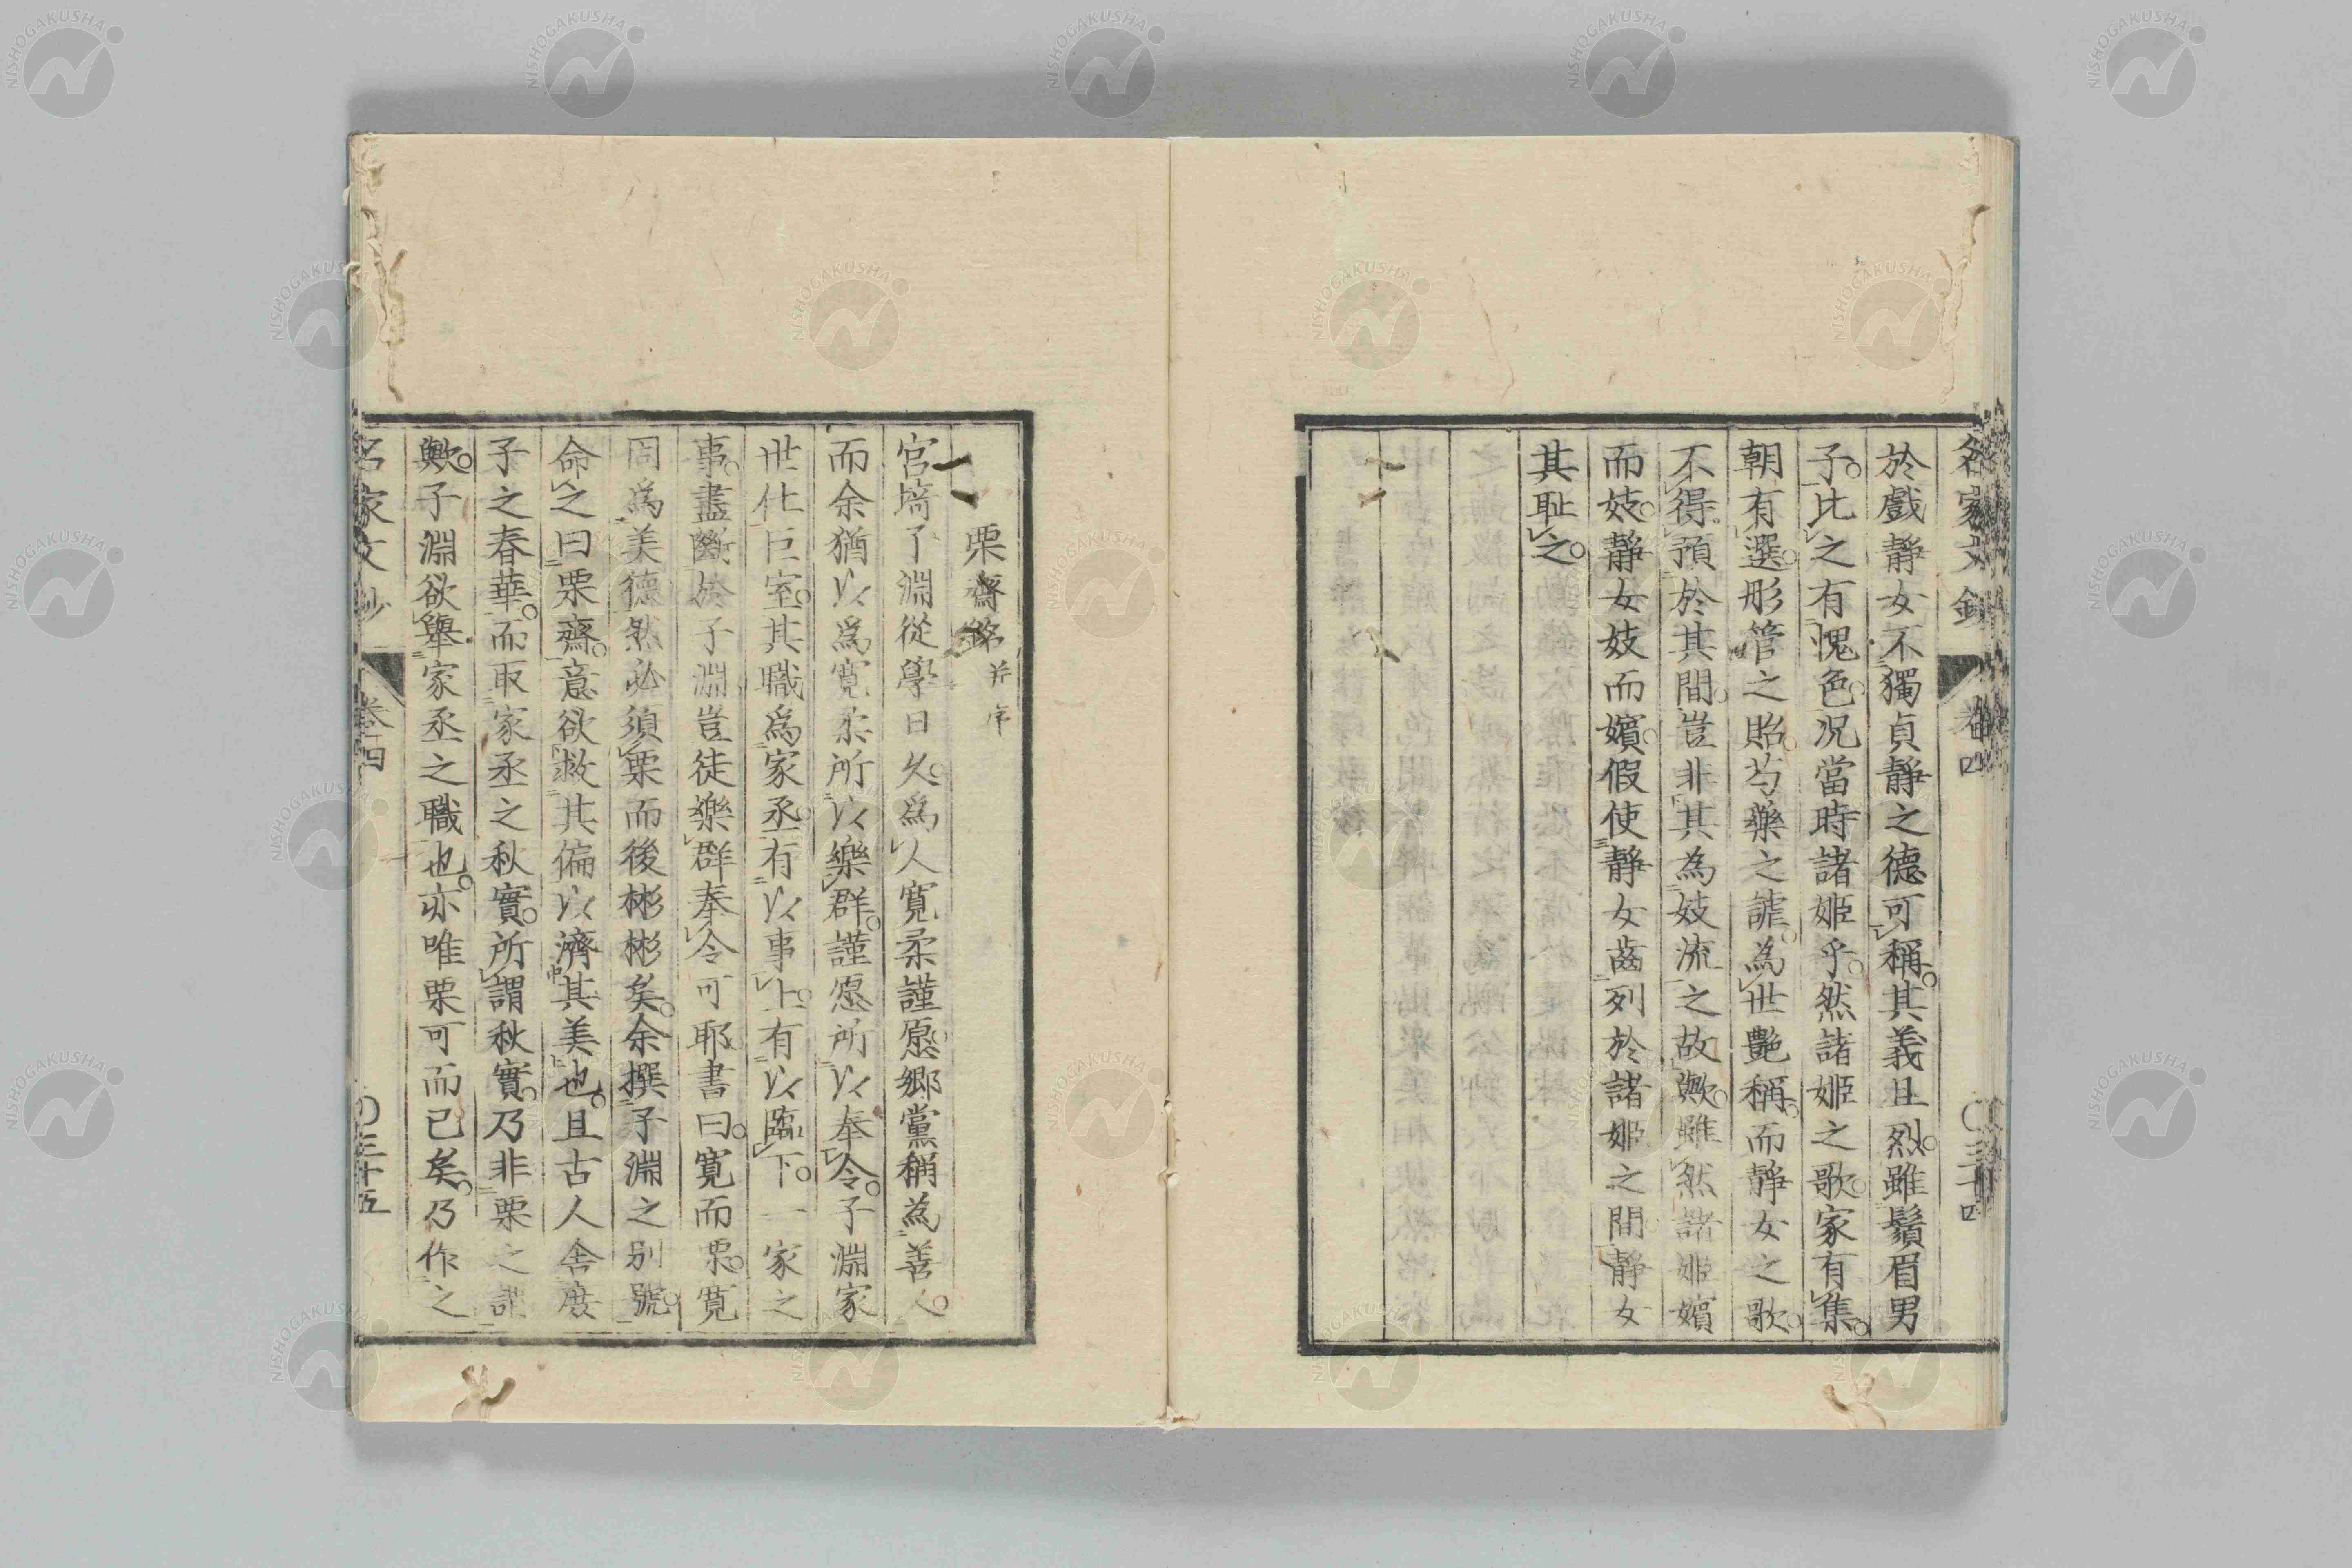 名家文鈔 卷四 〇三十四
於戲靜女不獨貞靜之德可稱。其義且烈。雖鬚眉男
子。比之有愧色。況當時諸姬乎。然諸姬之歌。家有集。
朝有選。彤管之貽。芍藥之謔。為世艷稱。而靜女之歌。
不得預於其間。豈非其為妓流之故歟。雖然諸姬嬪
而妓。靜女妓而嬪。假使靜女齒列於諸姬之間。靜女
其恥之。
栗齋銘并序
宮埼子淵從學日久。爲人寬柔謹愿。鄉黨稱為善人。
而余猶以爲寬柔所以樂群。謹愿所以奉令。子淵家
世仕巨室。其職爲家丞。有以事上。有以臨下。一家之
事。盡斷於子淵。豈徒樂群奉令可耶。書曰。寬而栗。寬
固爲美德。然必須栗而後彬彬矣。余撰子淵之別號。
命之曰栗齋。意欲救其偏以濟其美也。且古人舍庶
子之春華。而取家丞之秋實。所謂秋實。乃非栗之謂
歟。子淵欲舉家丞之職也。亦唯栗可而已矣。乃作之
名家文鈔 卷四 〇三十五
NISHOGAKUSHA